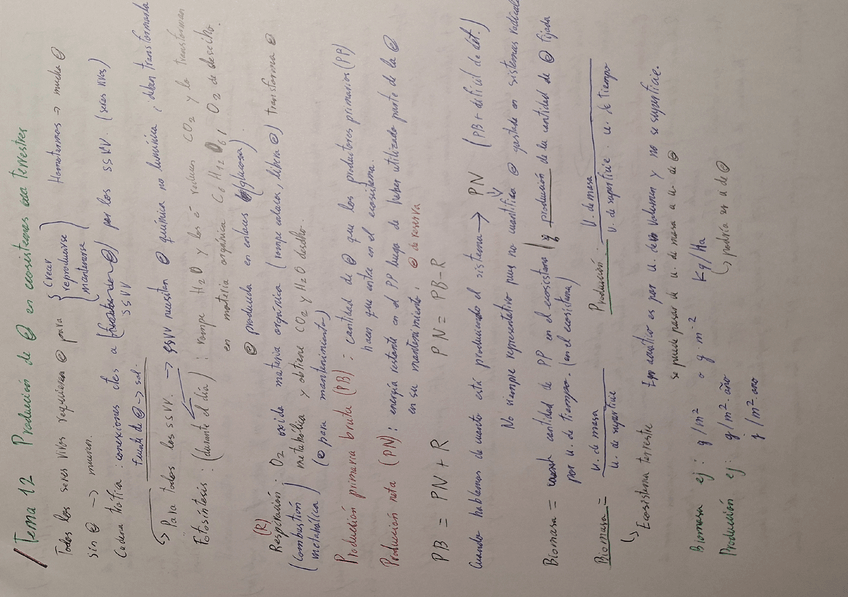 Tema 12 Producción de ⊖ en ecosistemas terrestres
Todos los seres vivos requieren ⊖ para { crecer reproducirse mantenerse } Homotermos → mucha ⊖
sin ⊖ → mueren.
Cadena trófica: conexiones de ⊖ por los ssvv. (seres vivos)
fuente de ⊖ → sol. ssvv
↳ Para todos los ssvv. → ssvv necesitan ⊖ química no lumínica, deben transformarla
Fotosíntesis: (durante el día): rompe H2O y los reducen CO2 y lo transforman
en materia orgánica C6H12O6, O2 de desecho.
⊖ producida en enlaces (glucosa)
(R)
Respiración: O2 oxida materia orgánica (rompe enlaces, libera ⊖) transforma ⊖
(combustión metabólica) metabólica y obtiene CO2 y H2O desecho
(⊖ para mantenimiento)
Producción primaria bruta (PB): cantidad de ⊖ que los productores primarios (PP)
hacen que entre en el ecosistema.
Producción neta (PN): energía restante en el PP luego de haber utilizado parte de la ⊖
en su mantenimiento, ⊖ de reserva
PB = PN + R PN = PB - R
Cuando hablamos de cuanto está produciendo el sistema → PN (PB + difícil de est.)
No siempre representativo pues no cuantifica ⊖ gastada en sistemas radicales
Biomasa = cantidad de PP en el ecosistema producción de la cantidad de ⊖ fijada
por u. de tiempo. (en el ecosistema)
Biomasa = u. de masa / u. de superficie Producción: u. de masa / u. de superficie · u. de tiempo
↳ Ecosistema terrestre acuático es por u. de volumen y no se superficie.
se puede pasar de u. de masa a u. de ⊖
Biomasa ej: g/m² o g m⁻² Kg/Ha
Producción ej: g/m²·año ↳ podría ser u de ⊖
g/m²·año